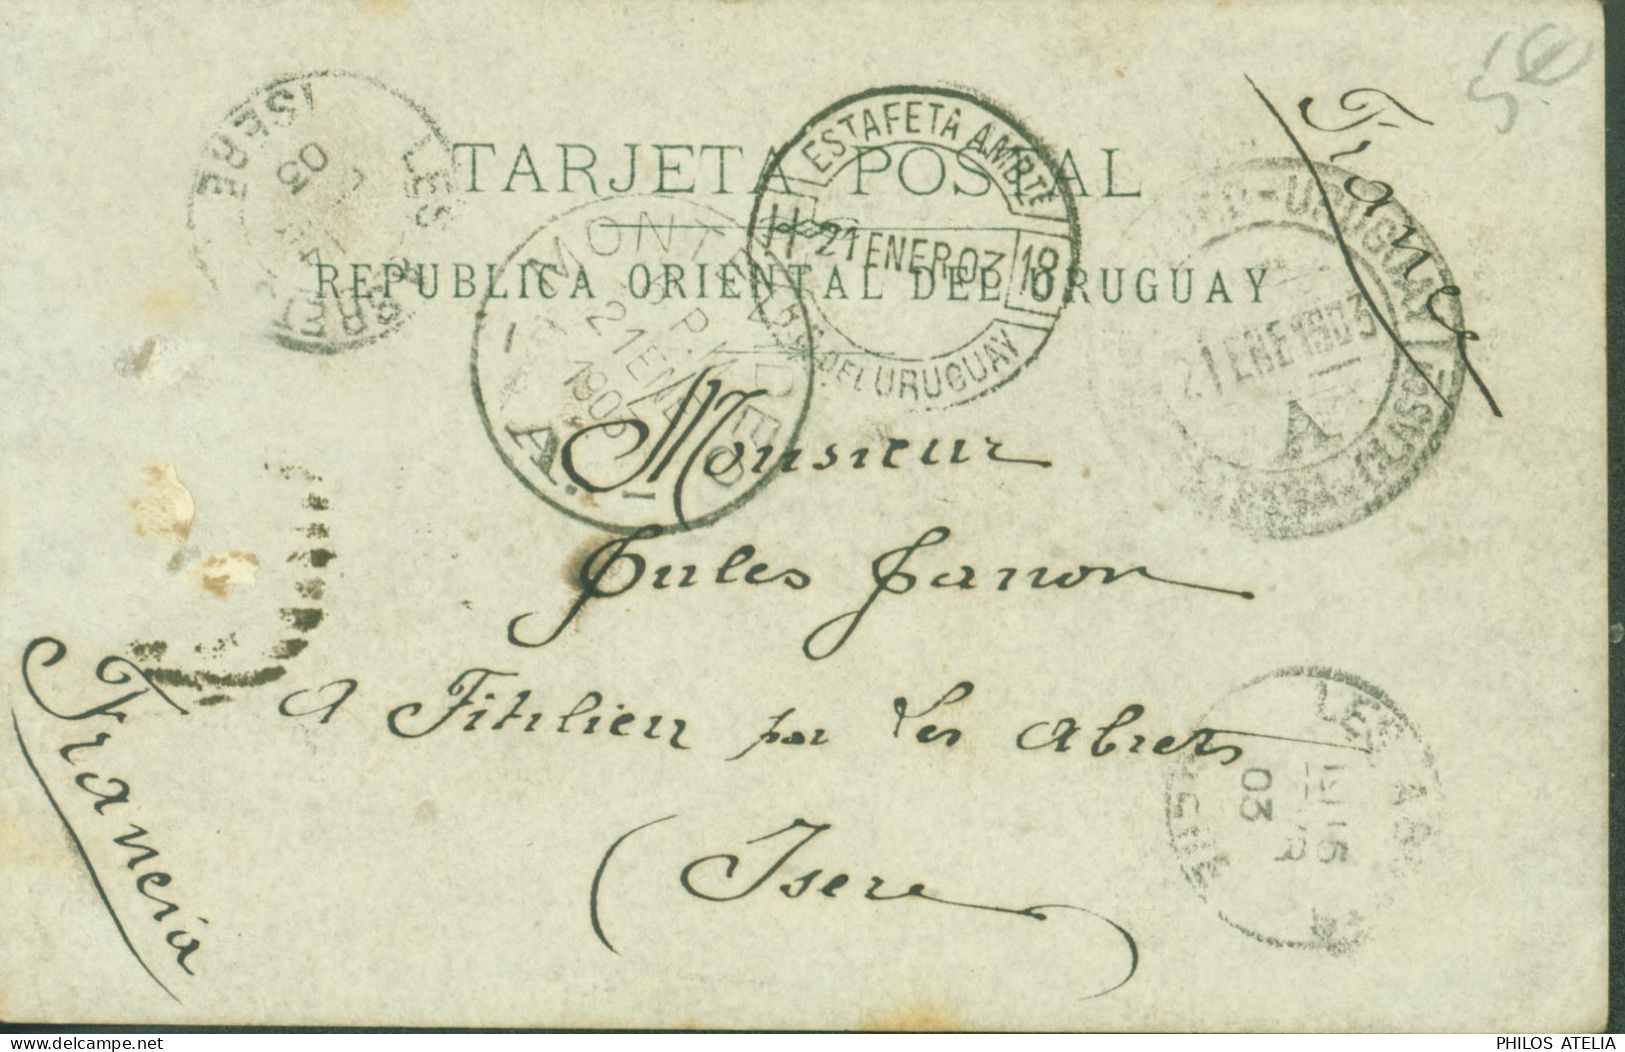 5€
France
TARJETA POSTAL
REPUBLICA ORIENTAL DEL URUGUAY
ISERE
03
LES
ESTAFETA AMBTE
21 ENER 03
18
DEL URUGUAY
MONTEVIDEO
6 P.M
21 ENE
A.
-URUGUAY
21 ENE 1903
A
Monsieur
Jules Janon
A Fitilieu par Les Abrets
(Isere)
Francia
LES
03
PHILOS ATELIA